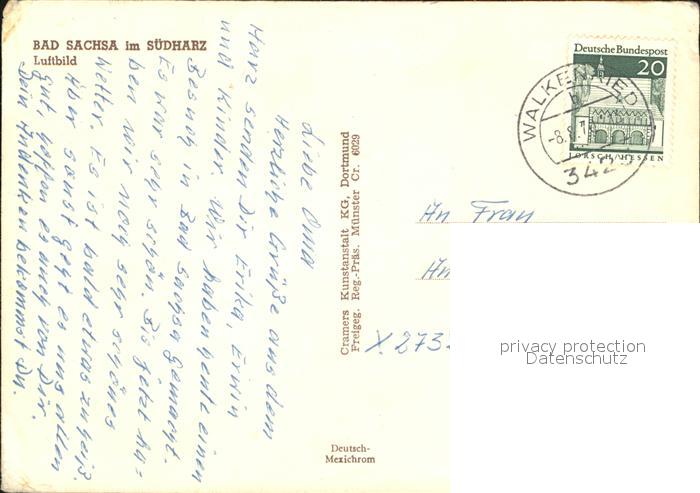 BAD SACHSA im SÜDHARZ
Luftbild
Liebe Oma
Herzliche Grüße aus dem
Harz senden Dir Erika, Erwin
und Kinder. Wir haben heute einen
Besuch in Bad Sachsa gemacht.
Es war sehr schön. Bis jetzt ha-
ben wir noch sehr schönes
Wetter. Es ist bald etwas zu heiß.
Aber sonst geht es uns allen
gut, hoffen es auch von Dir.
Dein Andenken bekommst Du.
Cramers Kunstanstalt KG, Dortmund
Freigeg. Reg.-Präs. Münster Cr. 6029
Deutsch-
Mexichrom
Deutsche Bundespost
20
LORSCH/HESSEN
WALKENRIED
b
-8.8.7
342
An Frau
X 273
privacy protection
Datenschutz